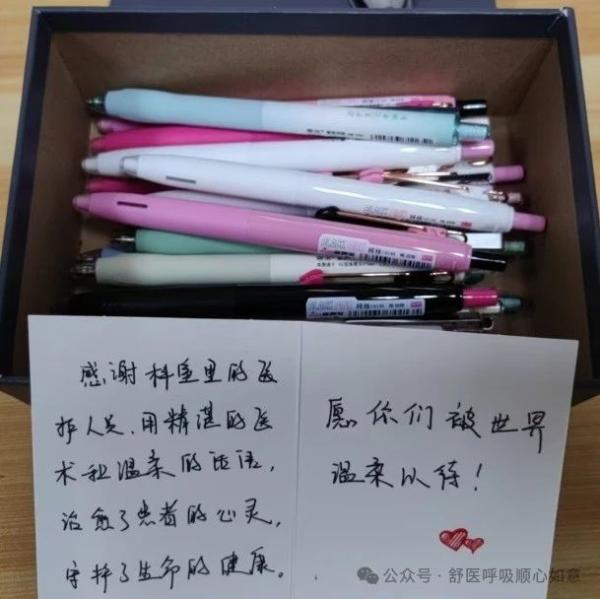 感谢科室里的医
护人员、用精湛的医
术和温柔的话语，
治愈了患者的心灵，
守护了生命的健康。
愿你们被世界
温柔以待！
公众号·舒医呼吸顺心如意